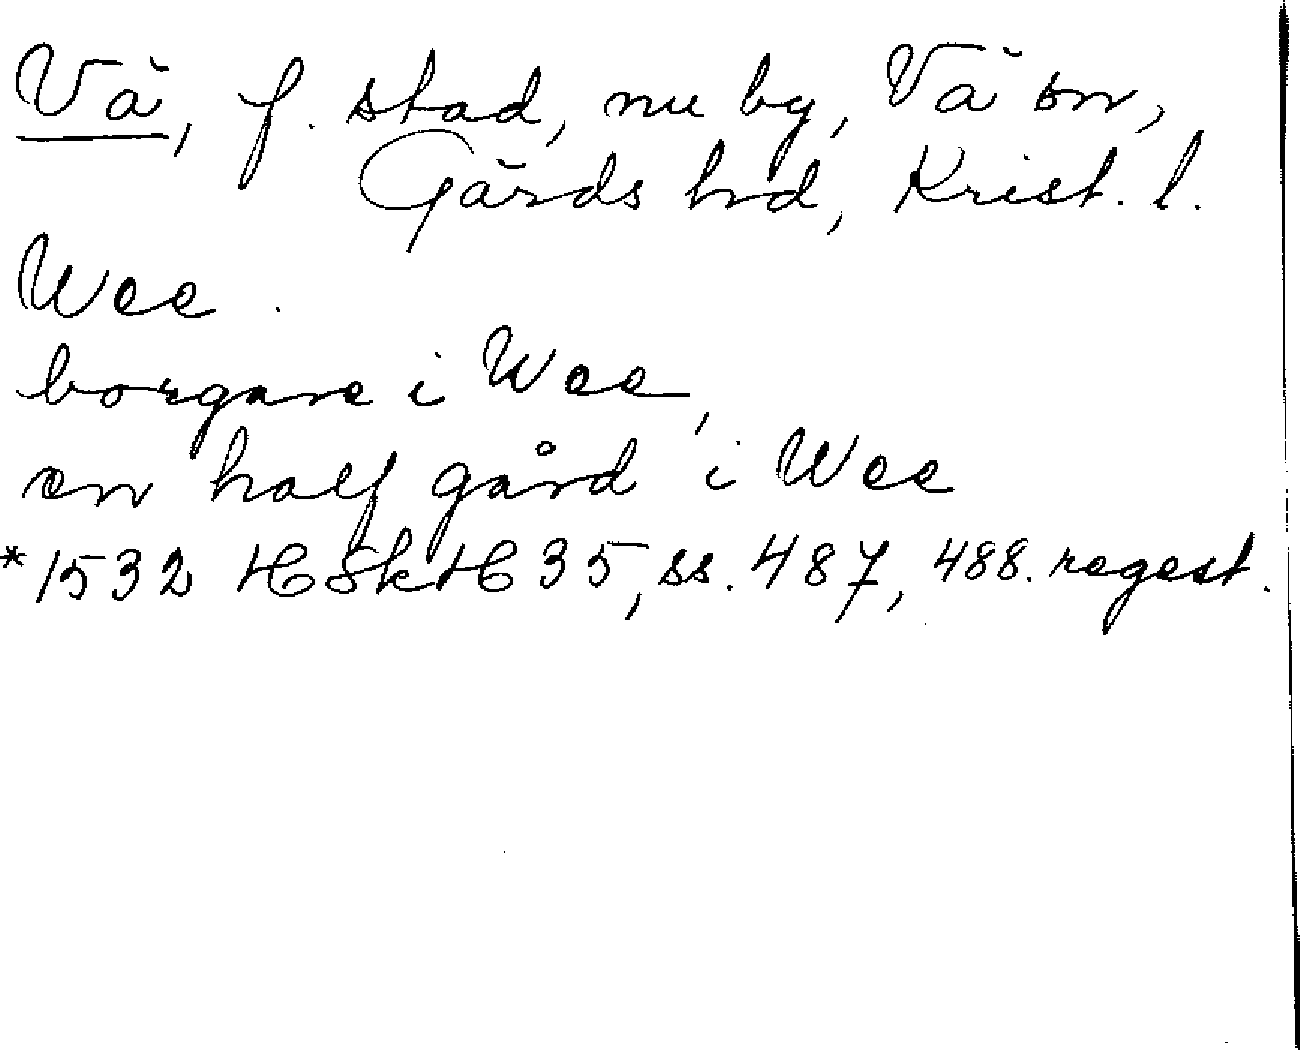 Vä, f. stad, nu by, Vä sn,
Gärds hd, Krist. l.
Wee.
borgare i Wee,
en half gård i Wee
*1532 HSkH 35, ss. 487, 488. regest.